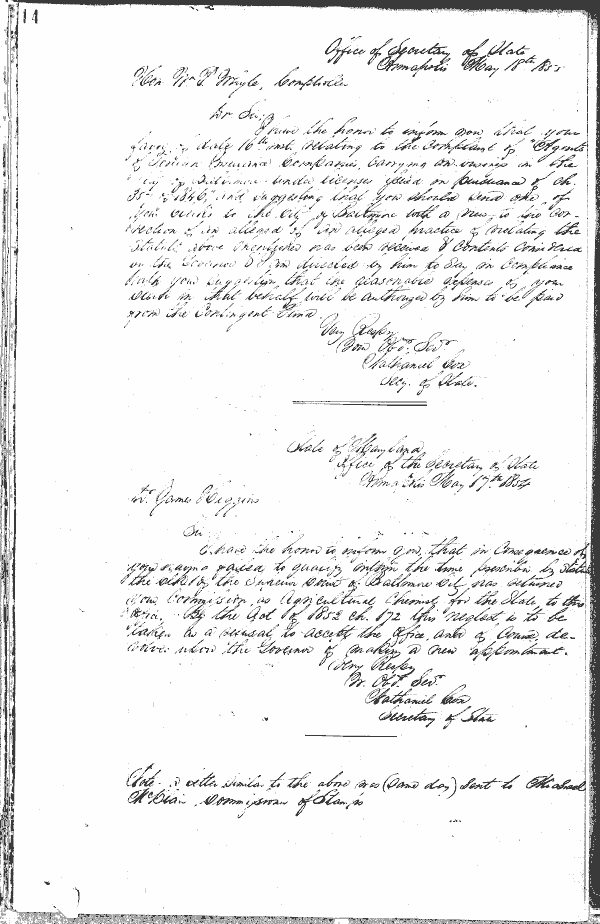 14
Office of Secretary of State
Annapolis May 18th 185
Hon Wm P. Whyte, Comptroller
Dr Sir;
I have the honor to inform you that your
favor of date 16th inst. relating to the Complaint of "Agents
of Foreign Insurance Companies, carrying on business in the
City of Baltimore under licenses issued in pursuance of ch.
35 of 1846, and suggesting that you should send one of
your clerks to the City of Baltimore with a view to the Cor-
rection of an alleged practice of violating the
Statute above mentioned has been received & Contents Considered
by the Governor & I am directed by him to say, in Compliance
with your suggestion, that the reasonable expenses of your
Clerk in that behalf will be authorized by him to be paid
from the Contingent Fund.
Very Respy
Your Obdt. Servt.
Nathaniel Cox
Secy. of State.
State of Maryland
Office of the Secretary of State
Annapolis May 17th 1854
Dr. James Higgins
Sir
I have the honor to inform you, that in Consequence of
your having failed to qualify within the time prescribed by Statute
the clerk of the Superior Court of Baltimore City has returned
your Commission, as Agricultural Chemist for the State to this
Office. By the Act of 1852 ch. 172 this neglect is to be
taken as a refusal to accept the office, and of Course, de-
volves upon the Governor of making a new appointment.
Very Respy
Yr. Obdt. Servt.
Nathaniel Cox
Secretary of State
Note. a letter similar to the above was (same day) sent to Michael
McBlair, Commissioner of Stamps